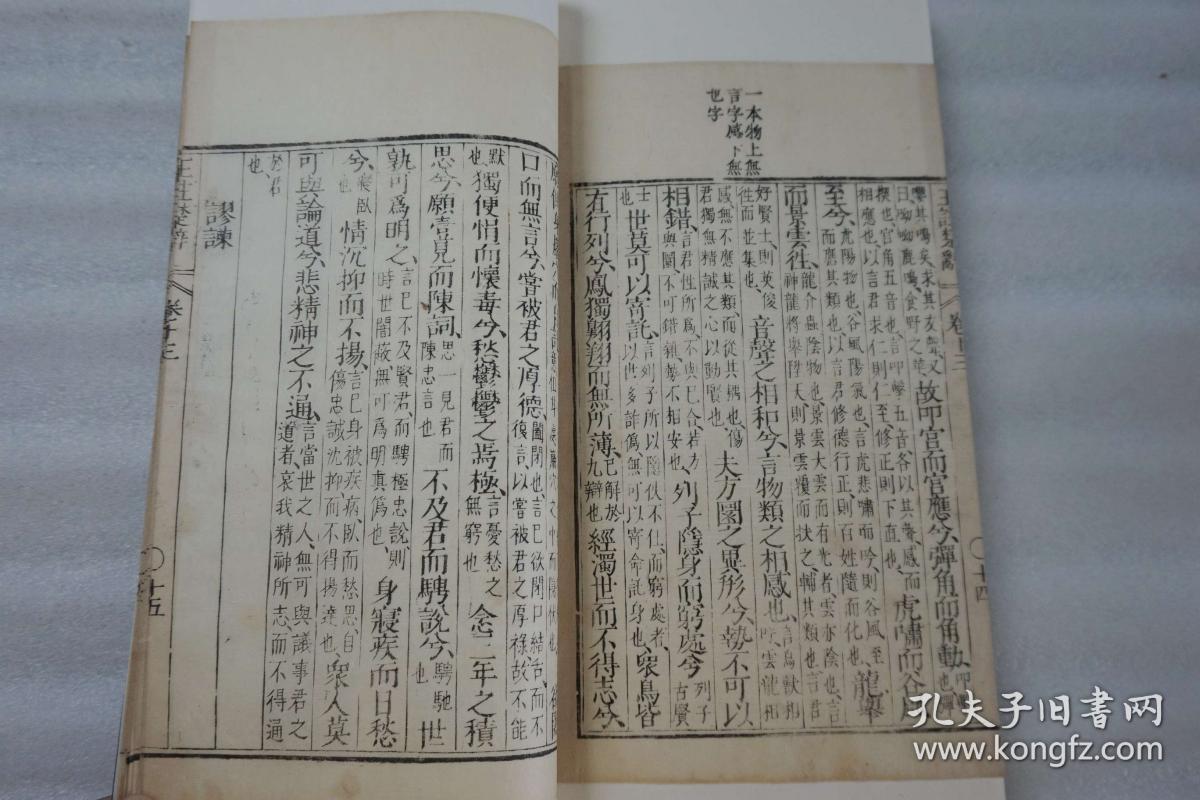 一本物上無
言字感下無
也字
嚶其鳴矣求其友聲又
曰呦呦鹿鳴食野之苹
故叩宮而宮應兮彈角而角動
揳也宮角五音也言叩擊五音各以其聲感而
相應也以言君求仁則仁至修正則下直也
虎嘯而谷風
至兮
虎陽物也谷風陽氣也言虎悲嘯而吟則谷風至
而應其類也以言君修德行正則百姓隨而化也
龍舉
而景雲往
龍介蟲陰物也景雲大雲而有光者雲亦陰也言
神龍將舉陞天則景雲覆而扶之輔其類也言君
好賢士則英俊
往而並集也
音聲之相和兮言物類之相感也
言鳥獸相
呼雲龍相
感無不應其類而從其耦也傷
君獨無精誠之心以動賢也
夫方圜之異形兮勢不可以
相錯
言君性所爲不與己合若方
與圜不可錯雜勢不相安也
列子隱身而窮處兮
列子
古賢
士
也
世莫可以寄託
言列子所以隱伏不仕而窮處者
以世多詐僞無可以寄命託身也
衆鳥皆
有行列兮鳳獨翺翔而無所薄
已解於
九辯也
經濁世而不得志兮
王註楚辭 卷十三 十四
口而無言兮嘗被君之厚德
闔閉也言己欲閉口結舌而不
復言以嘗被君之厚祿故不能
默
也
獨便悁而懷毒兮愁鬱鬱之焉極
言憂愁之
無窮也
念三年之積
思兮願壹見而陳詞
思一見君而
陳忠言也
不及君而騁說兮
騁馳
也
世
孰可爲明之
言己不及賢君而騁極忠說則
時世闇蔽無可爲明真僞也
身寢疾而日愁
兮
寢臥
也
情沉抑而不揚
言己身被疾病臥而愁思自
傷忠誠沈抑而不得揚達也
衆人莫
可與論道兮悲精神之不通
言當世之人無可與議事君之
道者哀我精神所志而不得通
於君
也
謬諫
王註楚辭 卷十三 十五
孔夫子旧書网
www.kongfz.com